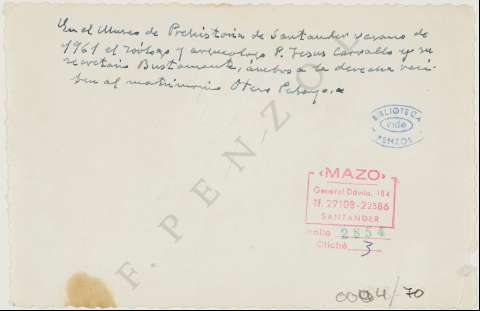 En el Museo de Prehistoria de Santander verano de
1961 el zoólogo y arqueologo P. Jesus Carvallo y su
secretario Bustamante, ámbos a la derecha reci-
ben al matrimonio Otero Pedrayo.
BIBLIOTECA
PENZOL
«MAZO»
General Dávila, 184
Tf. 27108-22586
SANTANDER
Rollo 2854
Cliché 3
F. PENZOL
/70